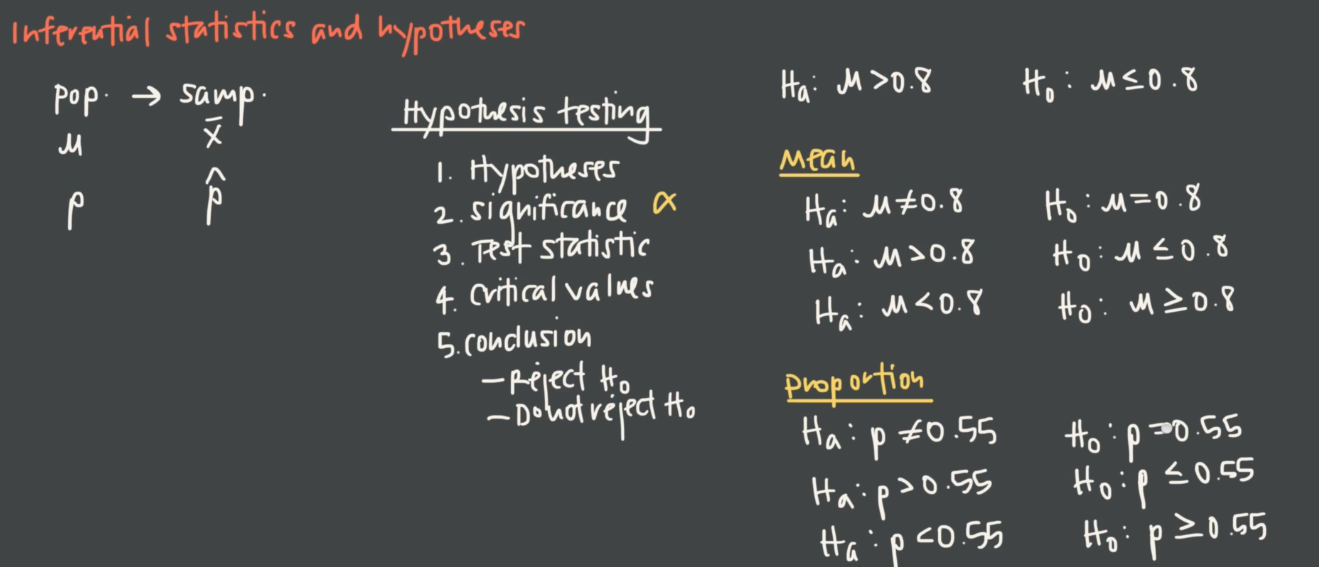 Inferential statistics and hypotheses
pop. → samp.
μ x̄
p p̂
Hypothesis testing
1. Hypotheses
2. significance α
3. Test statistic
4. critical values
5. conclusion
– Reject H₀
– Do not reject H₀
Hₐ: μ > 0.8 H₀: μ ≤ 0.8
Mean
Hₐ: μ ≠ 0.8 H₀: μ = 0.8
Hₐ: μ > 0.8 H₀: μ ≤ 0.8
Hₐ: μ < 0.8 H₀: μ ≥ 0.8
Proportion
Hₐ: p ≠ 0.55 H₀: p = 0.55
Hₐ: p > 0.55 H₀: p ≤ 0.55
Hₐ: p < 0.55 H₀: p ≥ 0.55